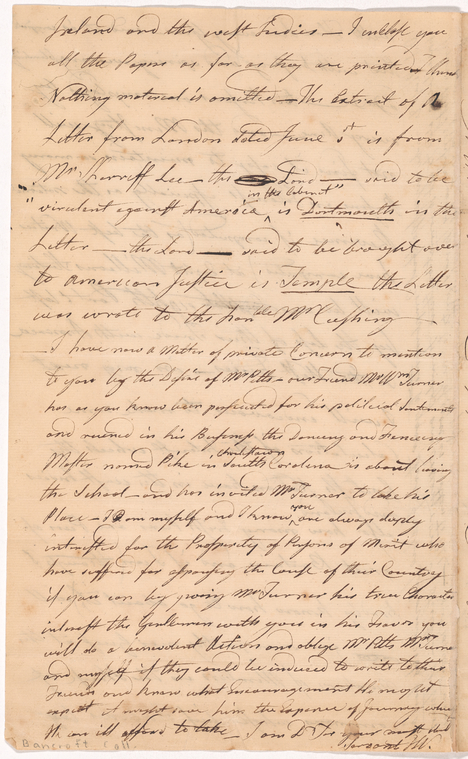 Ireland and the west Indies — I inclose you
all the Papers as far as they are printed There
Nothing material is omitted — The Extract of a
Letter from London dated June 5t is from
Mr Sherriff Lee — the Line — said to be
"virulent against America in the Cabinet" is Dartmouth in the
Letter — the Lord — said to be brought over
to American Justice is Temple the Letter
was wrote to the Honble Mr Cushing —
I have now a Matter of private Concern to mention
to you by the Desire of Mr Pitts — our Friend Mr Wm Turner
has as you know been persecuted for his political Sentiments
and ruened in his Business the Dancing and Fenceing
Master named Pike in Charlstown South Carolina is about leaving
the School — and has invited Mr Turner to take his
Place — I am myself and I know you are always deeply
intrested for the Prosperity of Persons of Merit who
have suffered for espousing the Cause of their Country
if you can by giving Mr Turner his true Character
interest the Gentlemen with you in his Favor you
will do a benevolent Action and oblige Mr Pitts Mr Turner
and myself if they could be induced to write to their
Friends and know what Encouragement He might
expect it might save him the expence of Journey which
He can ill afford to take I am Dr Sr your most obd
Servant JW.
Bancroft Coll.